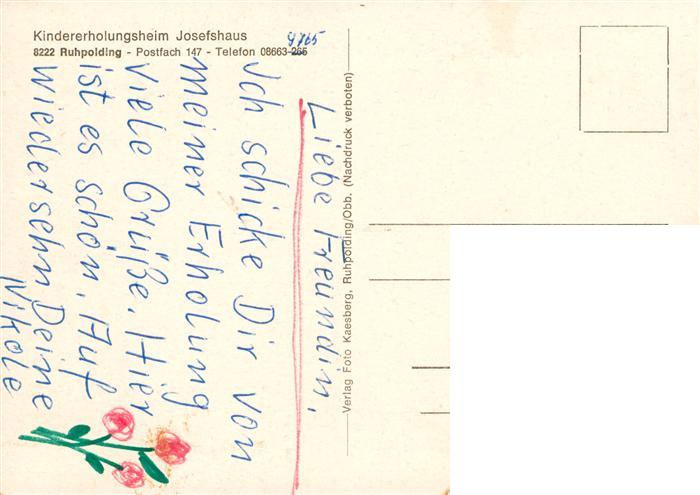 Kindererholungsheim Josefshaus
8222 Ruhpolding - Postfach 147 - Telefon 08663-265
9765
Liebe Freundin,
Ich schicke Dir von
meiner Erholung
viele Grüße. Hier
ist es schön. Auf
wiedersehn Deine
Nikole
Verlag Foto Kaesberg, Ruhpolding/Obb. (Nachdruck verboten)